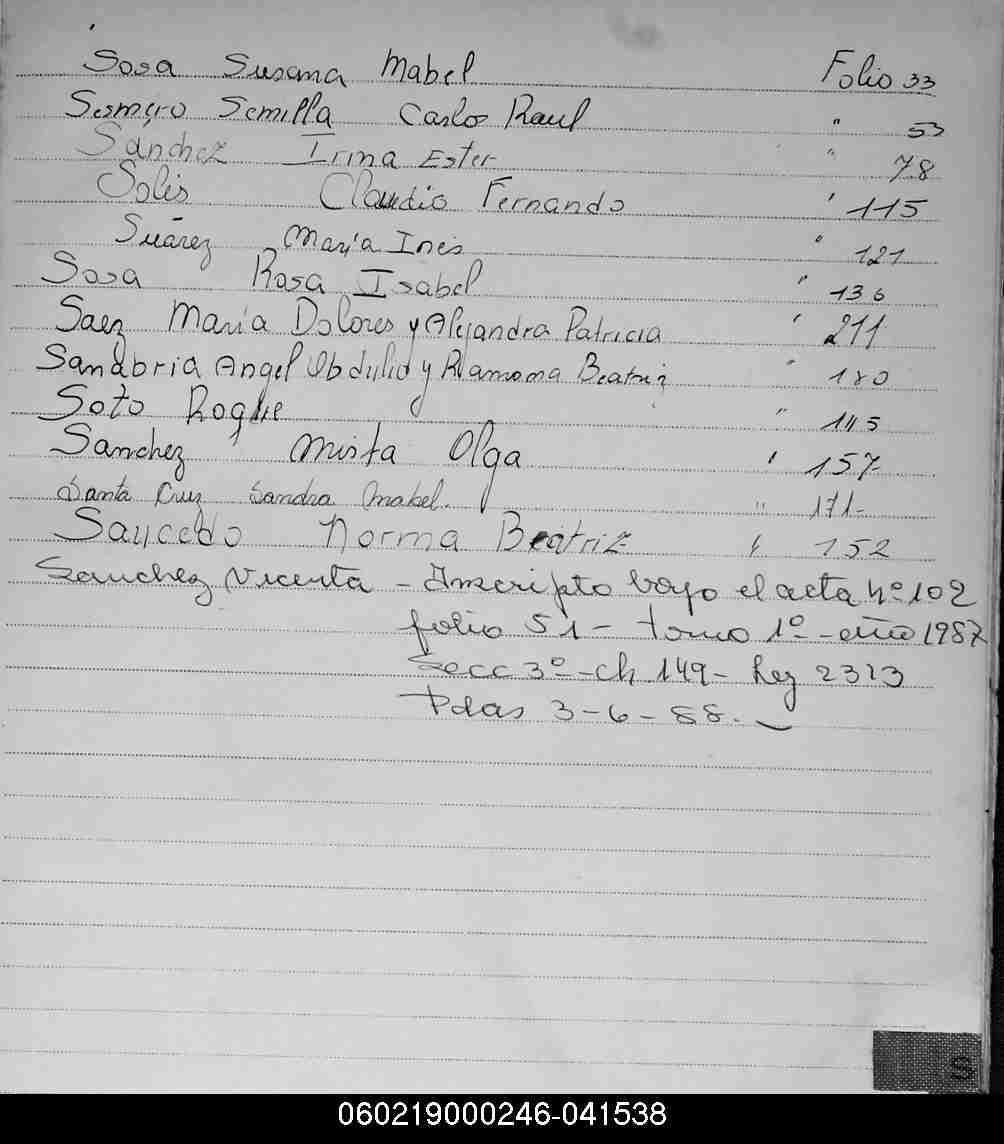 Sosa Susana Mabel Folio 33
Sesmero Semilla Carlos Raul " 53
Sánchez Irma Ester " 78
Solis Claudio Fernando " 115
Suárez María Inés " 121
Sosa Rosa Isabel " 136
Saez María Dolores y Alejandra Patricia " 211
Sanabria Angel Obdulio y Ramona Beatriz " 180
Soto Roque " 145
Sanchez Mirta Olga " 157
Santa Cruz Sandra Mabel. " 171-
Saucedo Norma Beatriz " 152
Sanchez Vicenta - Inscripto bajo el acta nº 102
folio 51 - tomo 1º - año 1987
Secc 3º - ch 149 - Ley 2313
Pdas 3-6-88.-
S
060219000246-041538